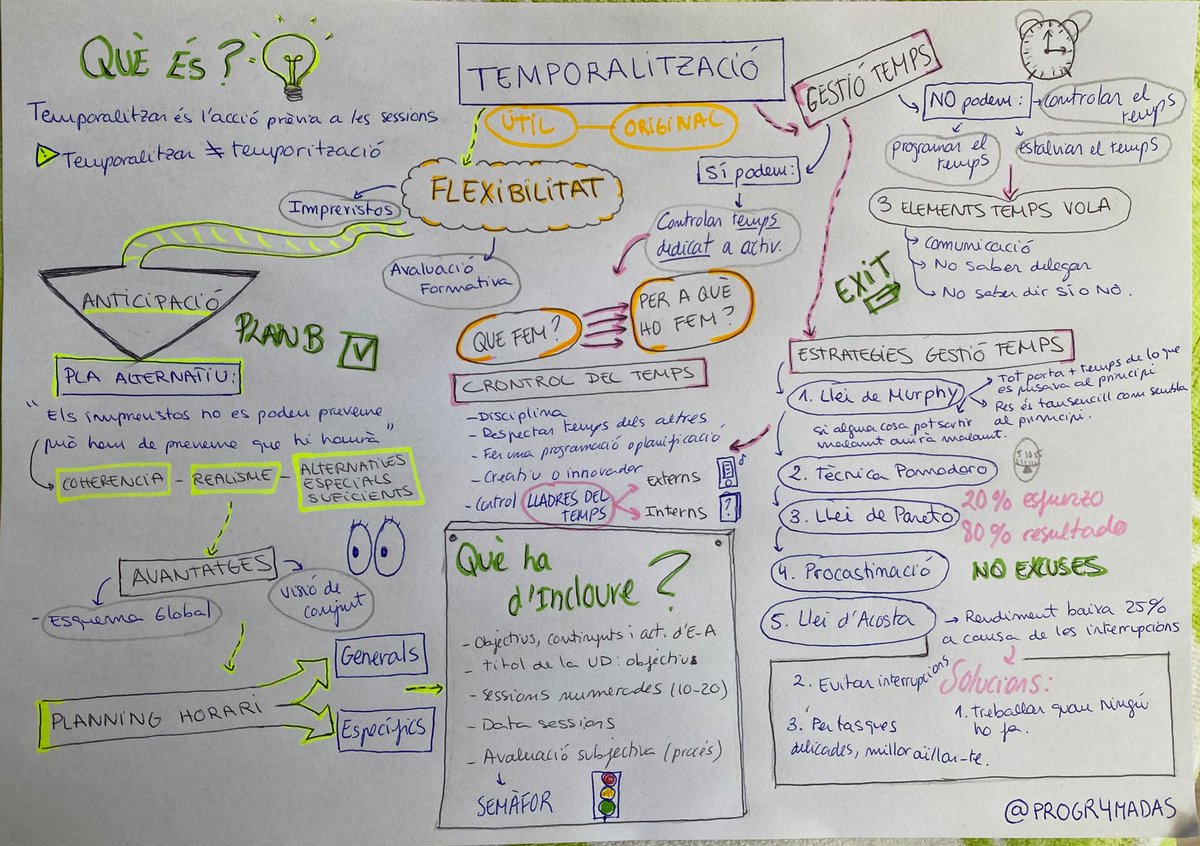 QUÈ ÉS?
Temporalitzar és l'acció prèvia a les sessions
Temporalitzar ≠ temporització
TEMPORALITZACIÓ
ÚTIL
ORIGINAL
FLEXIBILITAT
Imprevistos
Avaluació
Formativa
ANTICIPACIÓ
PLAN B
PLA ALTERNATIU:
"Els imprevistos no es poden preveure
però hem de preveure que hi haurà"
COHERENCIA - REALISME - ALTERNATIVES
ESPECIALS
SUFICIENTS
AVANTATGES
- Esquema Global
Visió de
conjunt
PLANNING HORARI
Generals
Específics
GESTIÓ TEMPS
NO podem:
controlar el
temps
programar el
temps
estalviar el temps
SÍ podem:
Controlar temps
dedicat a activ.
QUE FEM?
PER A QUÈ
HO FEM?
CRONTROL DEL TEMPS
- Disciplina
- Respectar temps dels altres
- Fer una programació o planificació
- Creatiu o innovador
- Control LLADRES DEL
TEMPS
Externs
Interns
?
Què ha
d'Incloure?
- Objectius, continguts i act. d'E-A
- títol de la UD: objectius
- sessions numerades (10-20)
- Data sessions
- Avaluació subjectiva (procés)
SEMÀFOR
3 ELEMENTS TEMPS VOLA
comunicació
No saber delegar
No saber dir SÍ o NO.
EXIT
ESTRATEGIES GESTIÓ TEMPS
1. Llei de Murphy
Tot porta + temps de lo que
es pensava al principi
Res és tan sencill com sembla
al principi.
si alguna cosa pot sortir
malament anirà malament.
2. Tècnica Pomodoro
5 10 15
3. Llei de Pareto
20% esfuerzo
80% resultado
4. Procastinació
NO EXCUSES
5. Llei d'Acosta
Rendiment baixa 25%
a causa de les interrupcions
Solucions:
1. Treballar quan Ningú
ho fa.
2. Evitar interrupcions
3. Per tasques
delicades, millor aillar-te.
@PROGR4MADAS